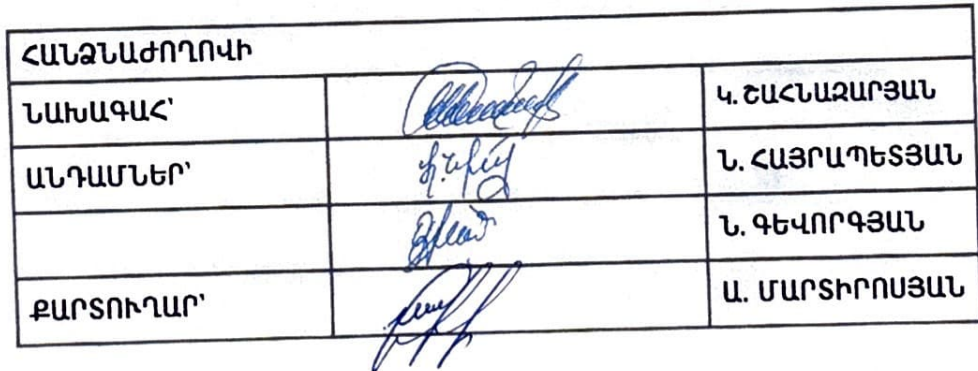 ՀԱՆՁՆԱԺՈՂՈՎԻ
ՆԱԽԱԳԱՀ՝ Կ. ՇԱՀՆԱԶԱՐՅԱՆ
ԱՆԴԱՄՆԵՐ՝ Ն. ՀԱՅՐԱՊԵՏՅԱՆ
Ն. ԳԵՎՈՐԳՅԱՆ
ՔԱՐՏՈՒՂԱՐ՝ Ա. ՄԱՐՏԻՐՈՍՅԱՆ